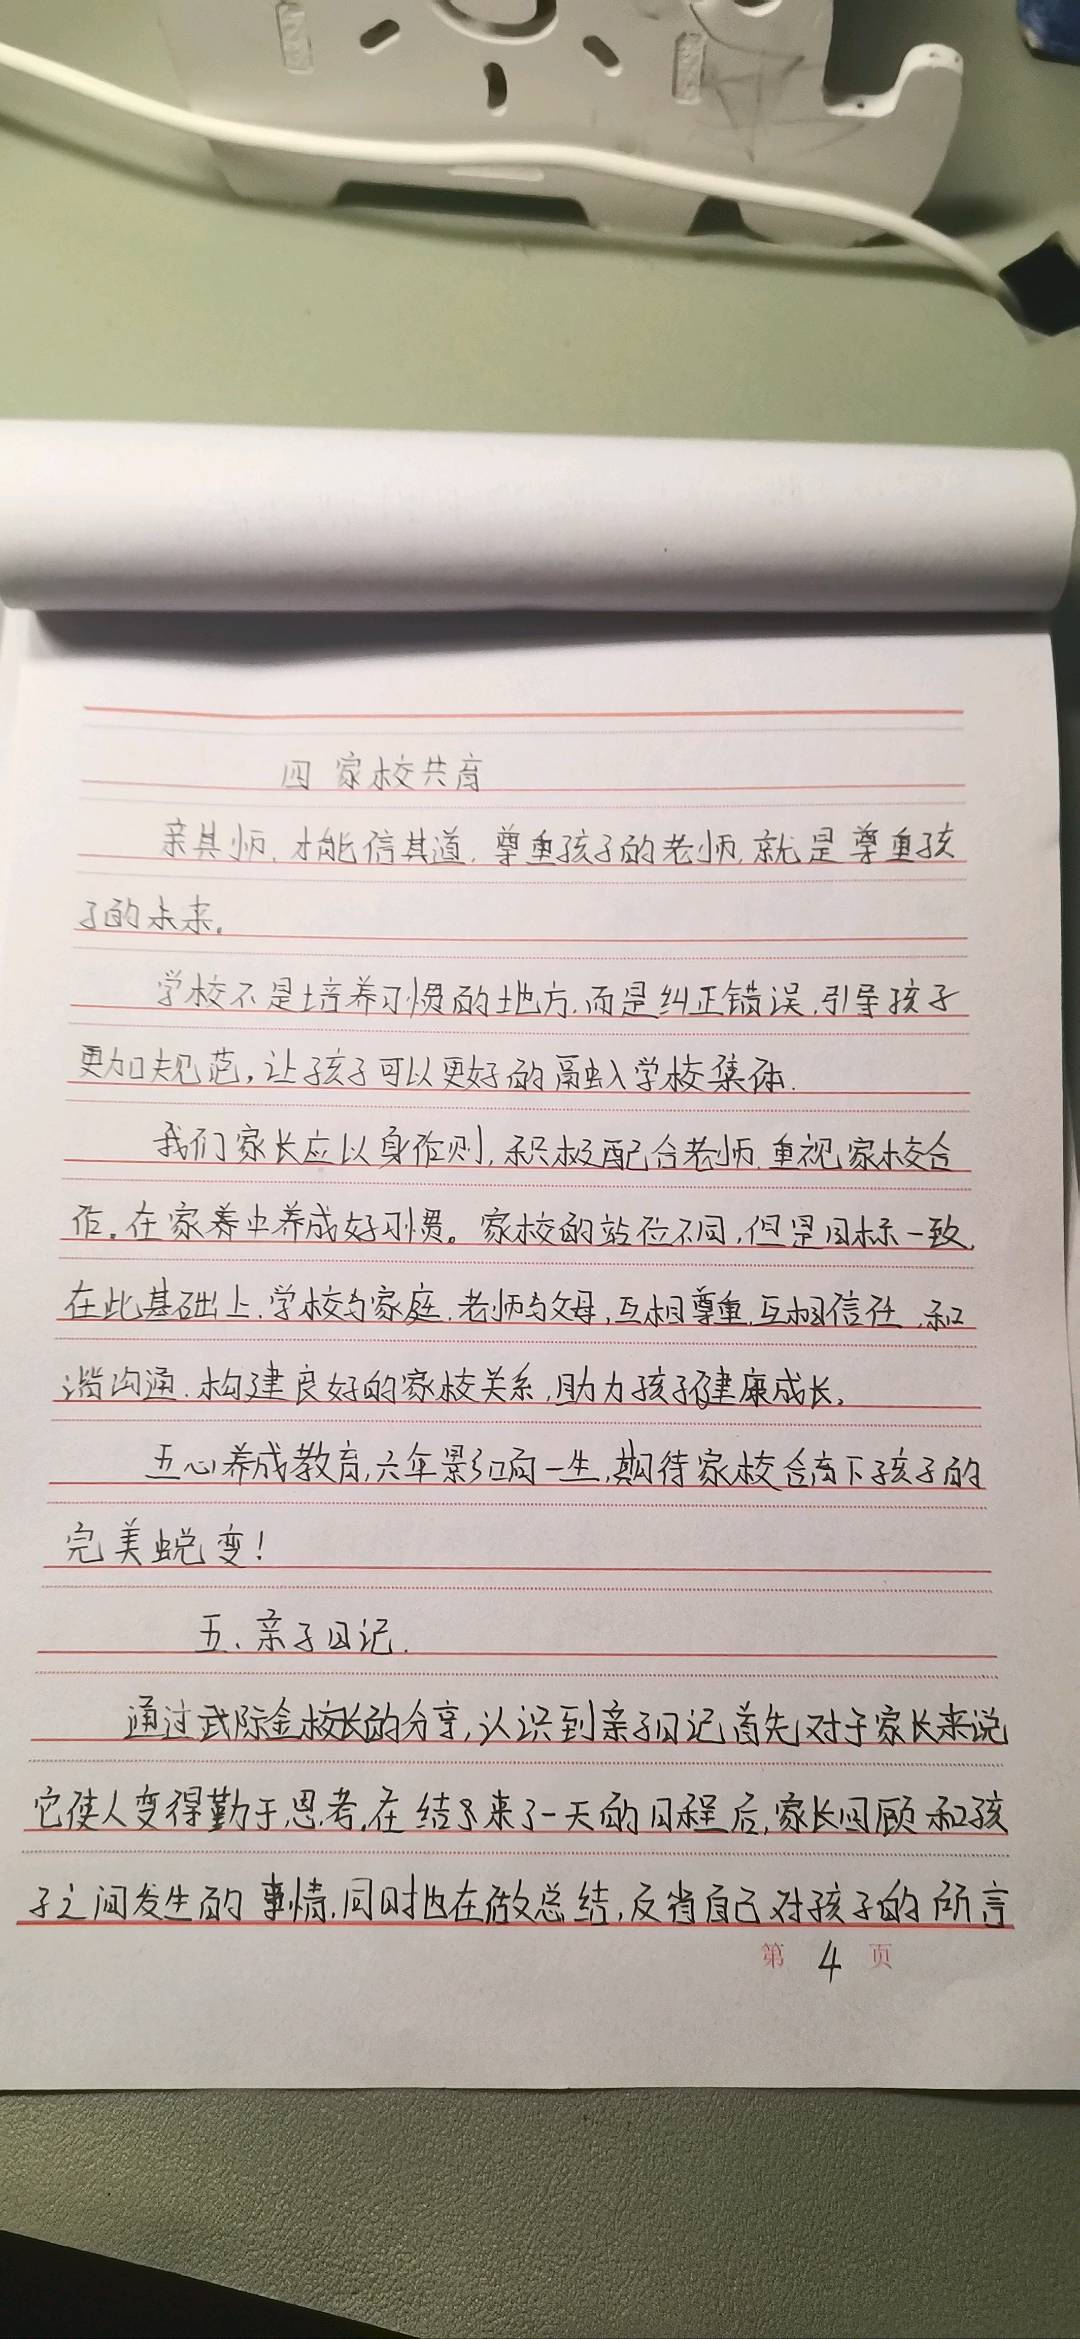 四 家校共育
亲其师，才能信其道，尊重孩子的老师，就是尊重孩
子的未来。
学校不是培养习惯的地方，而是纠正错误，引导孩子
更加规范，让孩子可以更好的融入学校集体．
我们家长应以身作则，积极配合老师，重视家校合
作。在家养中养成好习惯。家校的站位不同，但是目标一致，
在此基础上，学校与家庭，老师与父母，互相尊重，互相信任，和
谐沟通，构建良好的家校关系，助力孩子健康成长，
五心养成教育，六年影响一生，期待家校合育下孩子的
完美蜕变！
五、亲子日记．
通过武际金校长的分享，认识到亲子日记首先对于家长来说
它使人变得勤于思考，在结束了一天的日程后，家长回顾和孩
子之间发生的事情，同时也在做总结，反省自己对孩子的所言
第 4 页